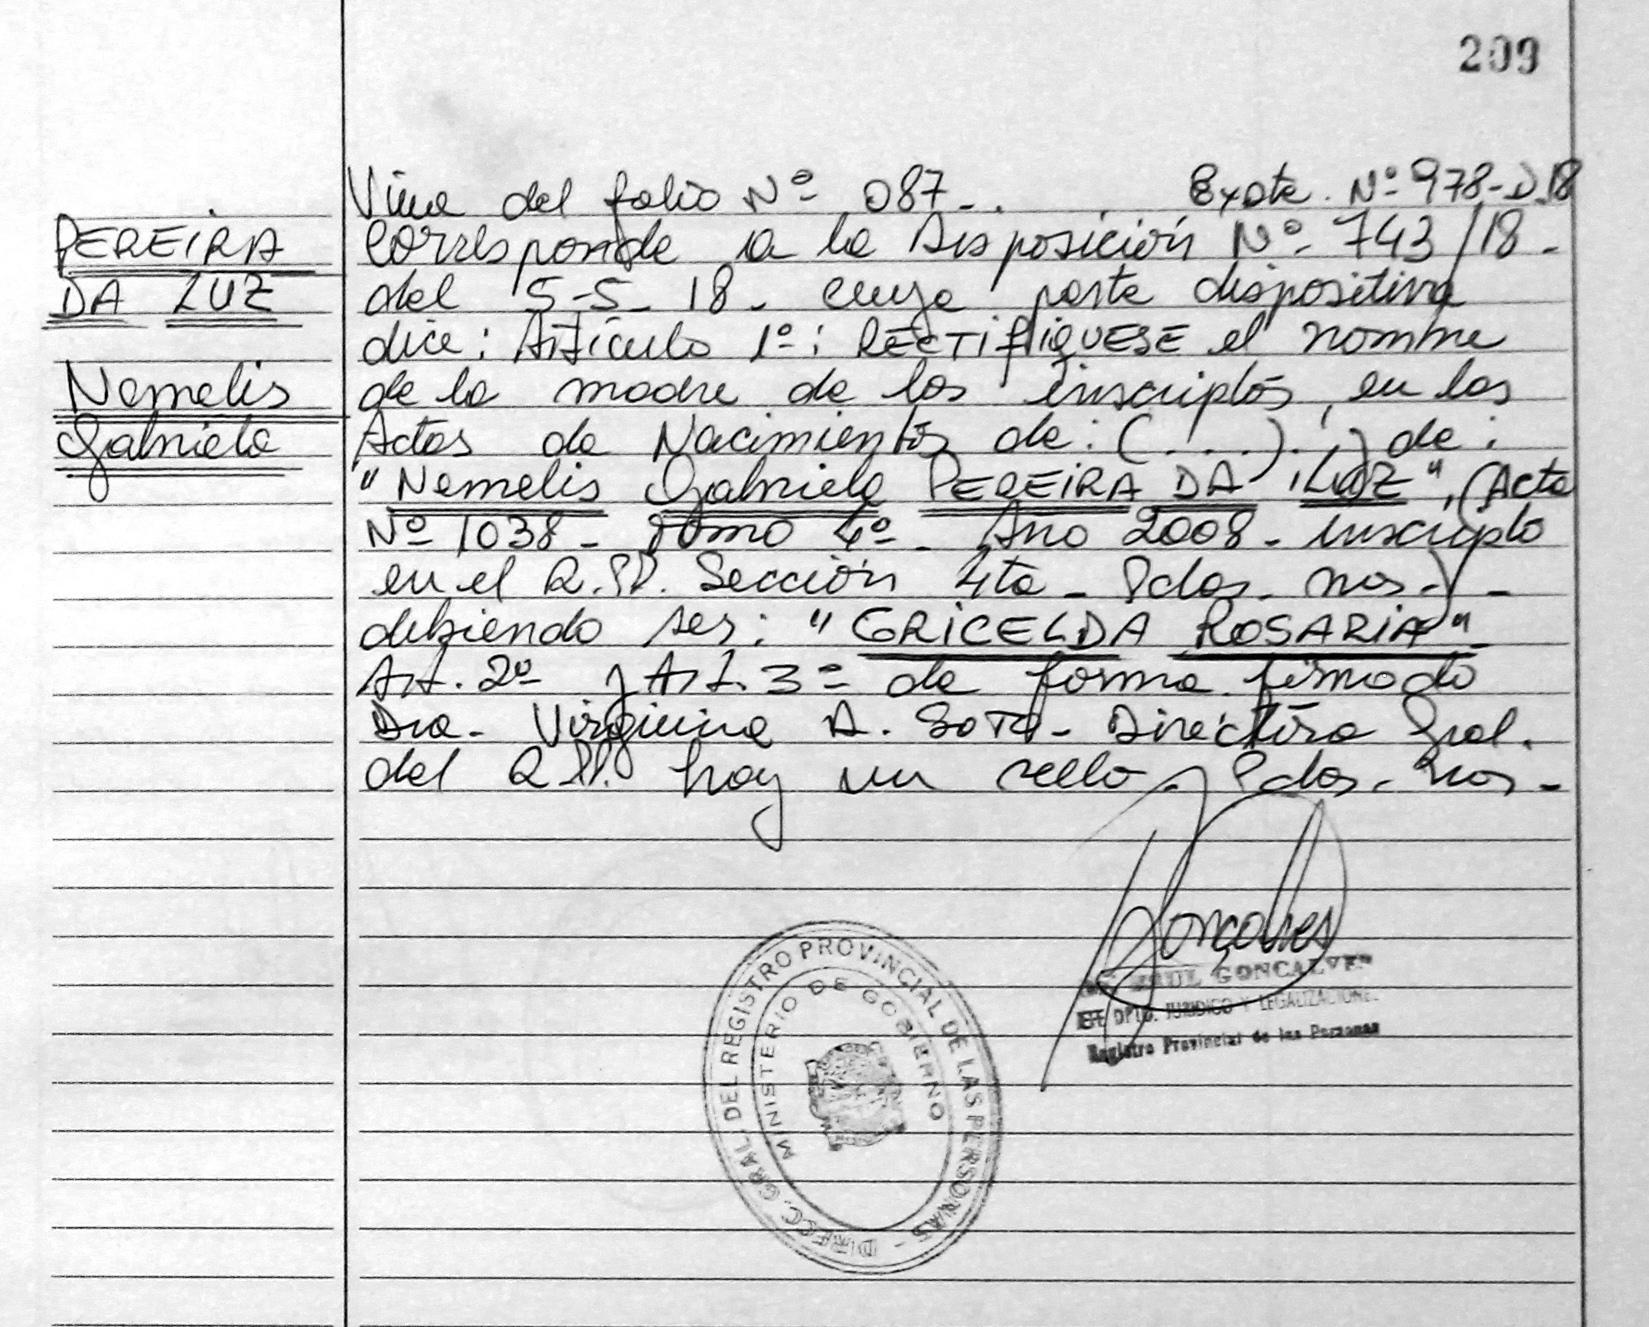 209
Viene del folio Nº 087-. Expte. Nº 978-D-18
PEREIRA
DA LUZ
Nemelis
Gabriela
Corresponde a la Disposición Nº 743/18-
del 5-5-18- cuya parte dispositiva
dice: Artículo 1º: RECTIFIQUESE el nombre
de la madre de los inscriptos, en las
Actas de Nacimientos de: (....)..;) de:
"Nemelis Gabriela PEREIRA DA LUZ", (Acta
Nº 1038- tomo 4º- Año 2008- inscripto
en el R.PP. Sección 4ta- Pdas- mnes-)-
debiendo ser: "GRICELDA ROSARIA"
Art. 2º y Art. 3º de forma. firmado
Dra- Virginia A. SOTO- Directora Gral.
del R.PP. hay un sello- Pdas- mnes-
Goncalves
RAUL GONCALVES
JEFE DPTO. JURIDICO Y LEGALIZACIONES
Registro Provincial de las Personas
DIRECC. GRAL. DEL REGISTRO PROVINCIAL DE LAS PERSONAS -
MINISTERIO DE GOBIERNO